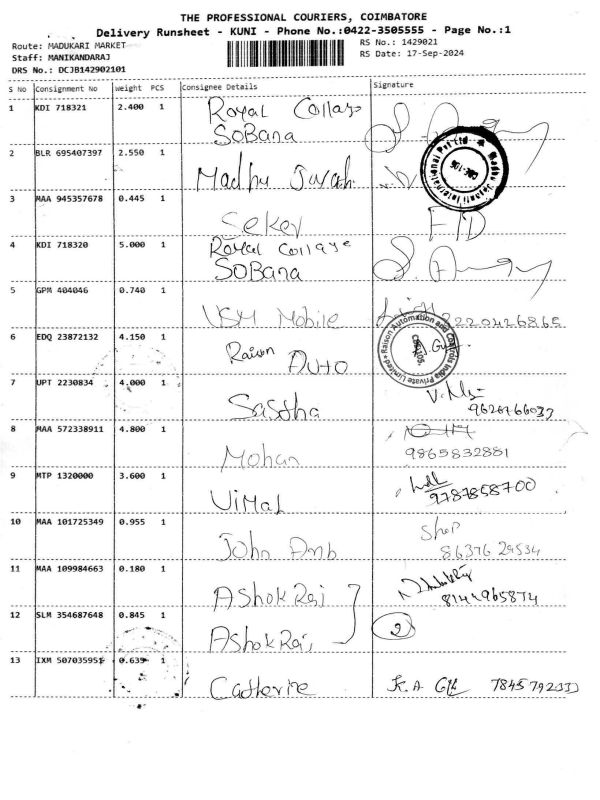 THE PROFESSIONAL COURIERS, COIMBATORE
Delivery Runsheet - KUNI - Phone No.:0422-3505555 - Page No.:1
Route: MADUKARI MARKET
RS No.: 1429021
Staff: MANIKANDARAJ
RS Date: 17-Sep-2024
DRS No.: DCJB142902101
S No Consignment No weight PCS Consignee Details Signature
1 KDI 718321 2.400 1 Royal Collage
SOBana
2 BLR 695407397 2.550 1 Madhu
3 MAA 945357678 0.445 1 Sekar
4 KDI 718320 5.000 1 Royal Collage
SOBana
5 GPM 404046 0.740 1 VSM Mobile 8220426865
6 EDQ 23872132 4.150 1 Raison Auto
Raison Automation and Controls India Private Limited
7 UPT 2230834 4.000 1 Sastha
8 MAA 572338911 4.800 1 Mohan
9865832881
9 MTP 1320000 3.600 1 Vimal
9787858700
10 MAA 101725349 0.955 1 John Amb Shop
86376 29534
11 MAA 109984663 0.180 1 AShok Raj
8144965874
12 SLM 354687648 0.845 1 AShok Raj 2
13 IXM 507035951 0.635 1 Catherine